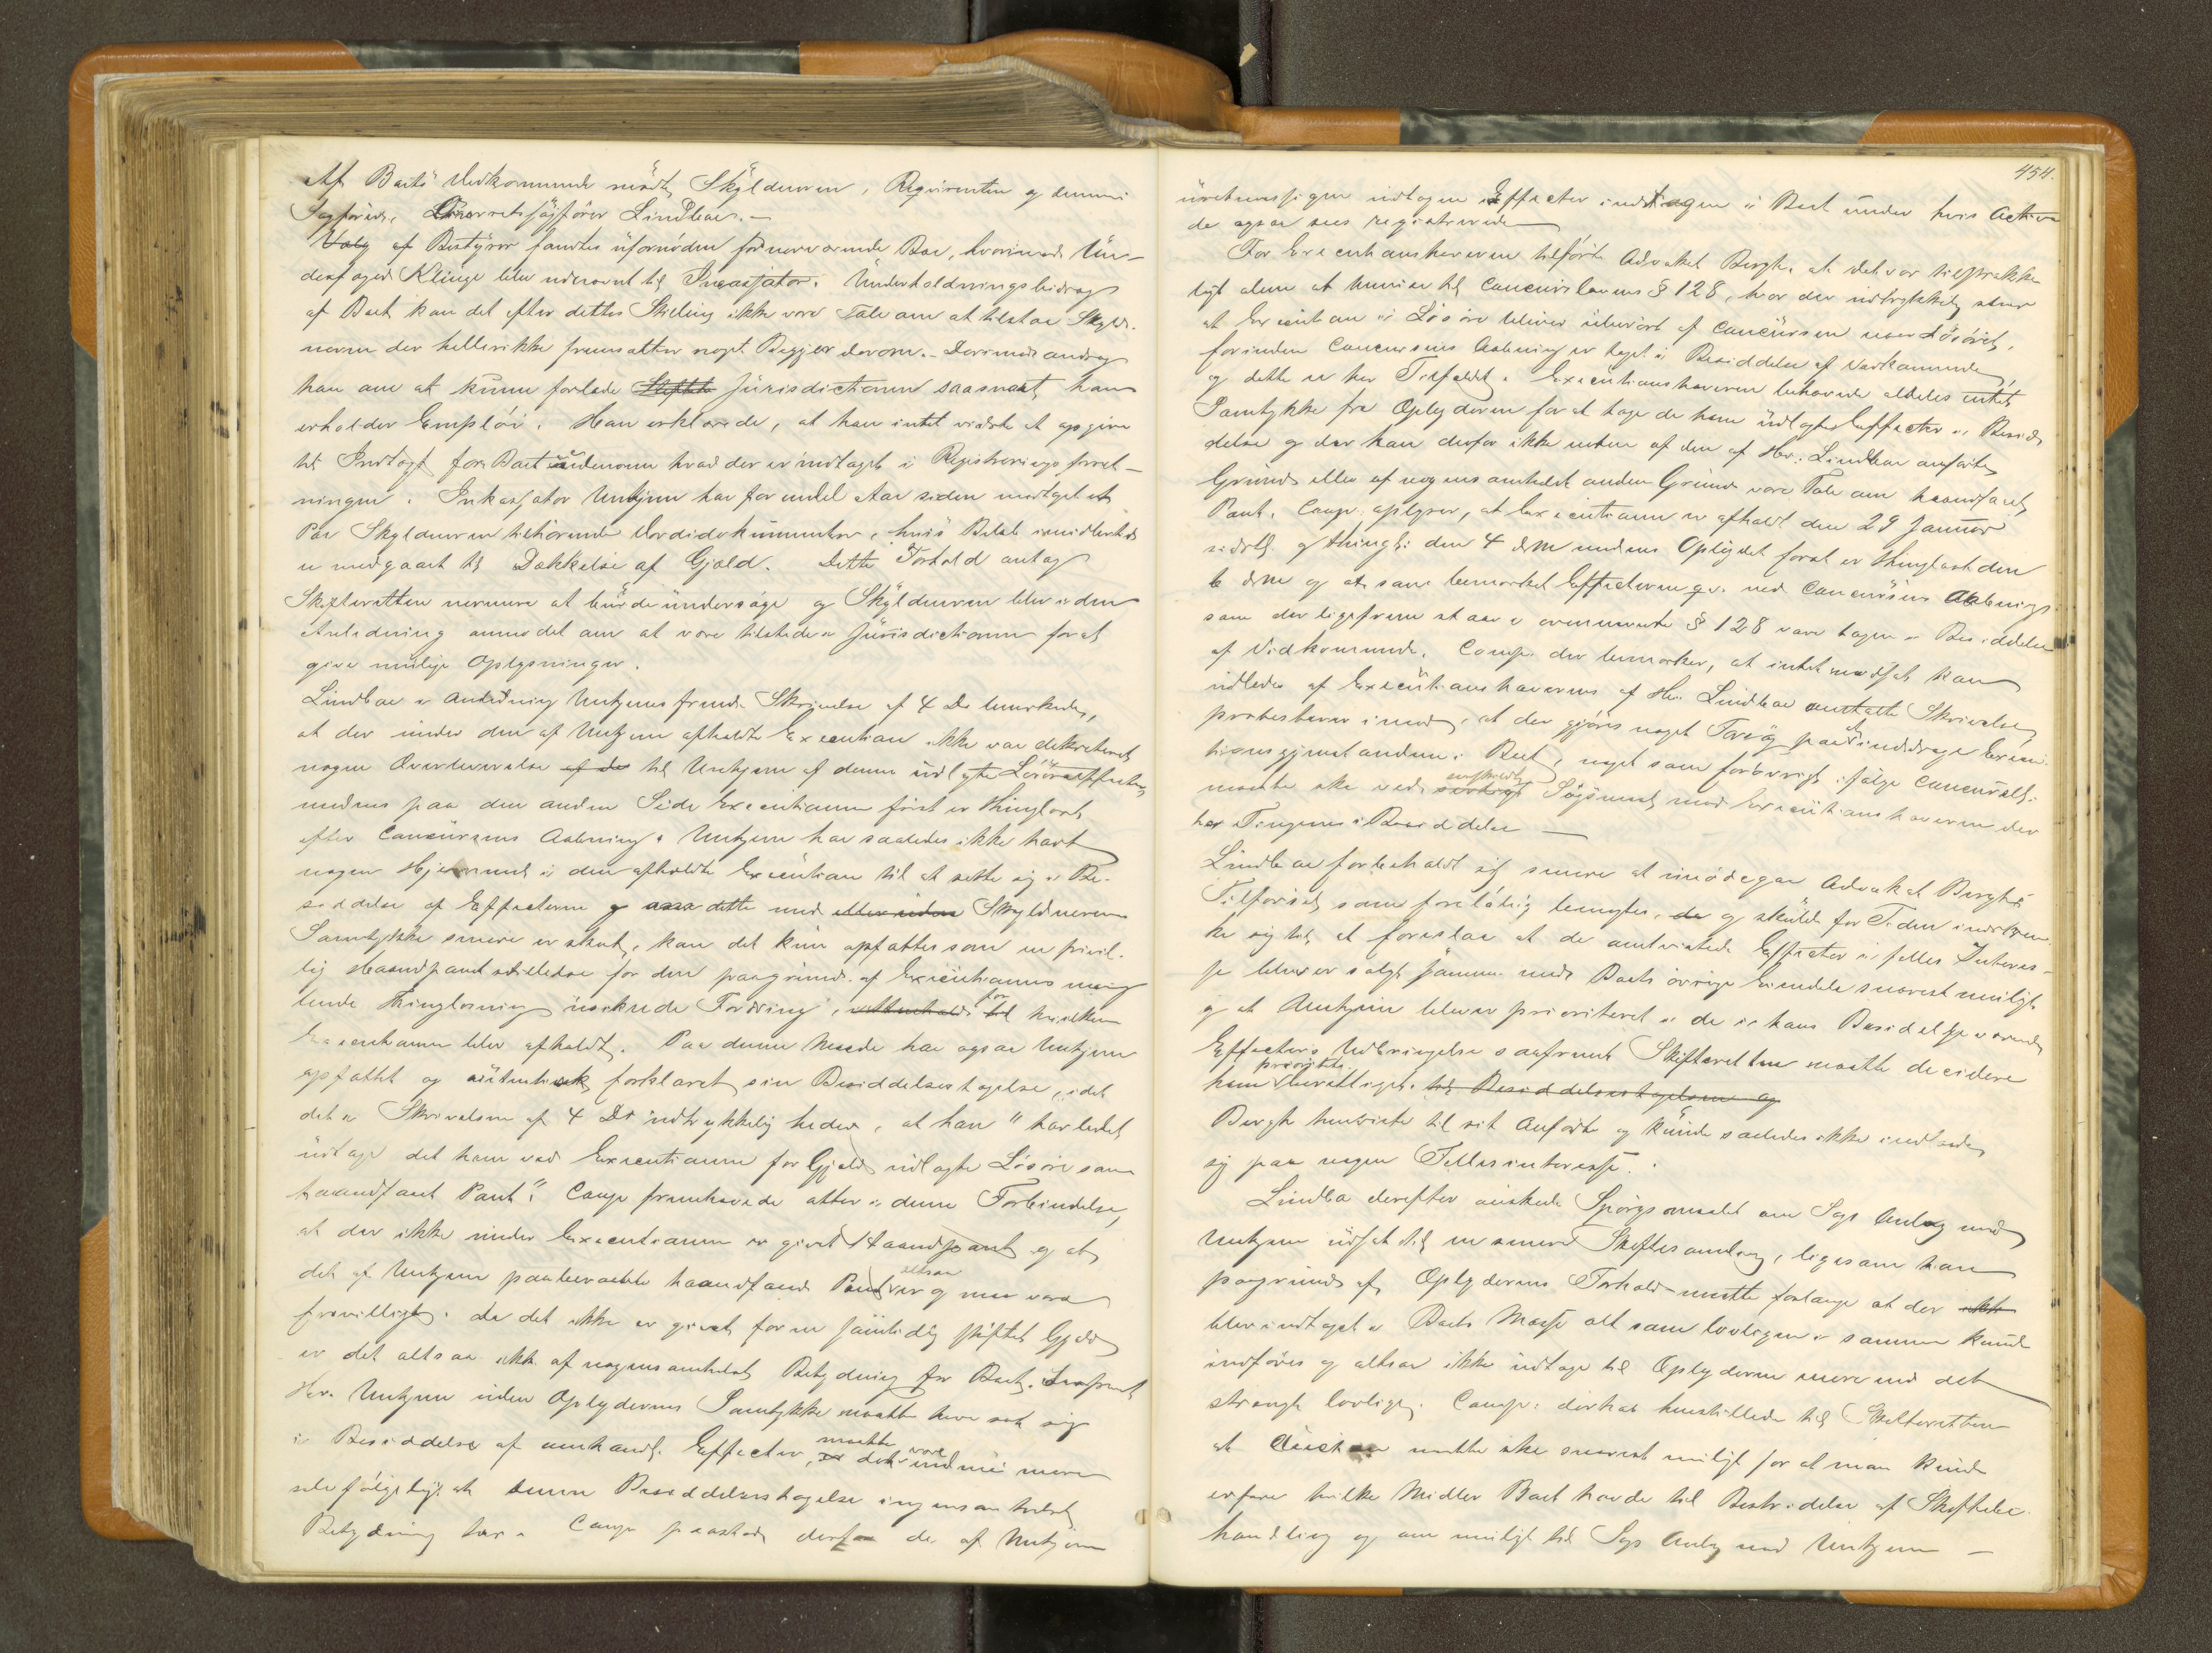 Af Boets Vedkommende mødte Skyldneren, Reqvirenten og dennes
Sagfører, Overretssagfører Lindboe.—
Valg af Bestyrer fandtes ufornøden for nærværende Boe, hvorimod Un-
derfoged Klinge blev udnævnt til Incassator. Underholdningsbidrag
af Boet kan det efter dettes Stilling ikke være Tale om at tilstaa Skyld-
neren der hellerikke fremsatter noget Begjær derom.- Derimod androg
han om at kunne forlade Jurisdictionen saasnart han
erholder Emplöi. Han erklærede, at han intet vidste at opgive
til Indtægt for Boet udenom hvad der er indtaget i Registreringsforret-
ningen. Inkassator Untjem har for endel Aar siden modtaget et
Par Skyldneren tilhørende Værdidokumenter, hvis Beløb imidlertid
er medgaaet til Dækkelse af Gjæld. Dette Forhold antog
Skifteretten nærmere at burde undersøge og Skyldneren blev i den
Anledning anmodet om at være tilstede i Jurisdictionen for at
give mulige Oplysninger.
Lindboe i Anledning Untjems fremlt. Skrivelse af 4 Ds bemærkede,
at der under den af Untjem afholdte Execution ikke var dekreteret
nogen Overleverelse af de til Untjem af denne udlagte Løsøreeffecter,
medens paa den anden Side Executionen først er thinglæst
efter Concursens Aabning. Untjem har saaledes ikke havt
nogen Hjemmel i den afholdte Execution til at sætte sig i Be-
siddelse af Effecterne og dette med eller uden Skyldnerens
Samtykke senere er skeet, kan det kun opfattes som en frivil-
lig Haandpantstillelse for den paagrund af Executionens mang-
lende Thinglæsning usikrede Fordring, for hvilken
Executionen blev afholdt. Paa denne Maade har ogsaa Untjem
opfattet og autentisk forklaret sin Besiddelsestagelse, idet
det i Skrivelsen af 4 Ds udtrykkelig heder, at han "har ladet
udtage det ham ved Executionen for Gjæld udlagte Løsøre som
haandfaaet Pant". Comp. fremhævede atter i denne Forbindelse,
at der ikke under Executionen er givet Haandpant og at
det af Untjem paaberaabte haandfaaede Pant altsaa er og maa være
frivilligt. Da det ikke er givet for en samtidig stiftet Gjæld
er det altsaa ikke af nogensomhelst Betydning for Boet. Saafremt
Hr. Untjem uden Oplyderens Samtykke maatte have sat sig
i Besiddelse af omhandl. Effecter, maatte det være end mere
selvfølgeligt at denne Besiddelsestagelse ingensomhelst
Betydning har. Comp. paastod derfor de af Untjem
454.
uretmæssigen udtagne Effecter inddragne i Boet under hvis Activa
de ogsaa sees registrerede
For Executionshaveren tilførte Advokat Bergh, at det var tilstrække-
ligt alene at henvise til Concurslovens § 128, hvor der udtrykkelig staar
at Execution i Løsøre bliver uberørt af Concursen naar Løsøret,
forinden Concursens Aabning er taget i Besiddelse af Vedkommende
og dette er her Tilfældet. Executionshaveren behøvede aldeles intet
Samtykke fra Oplyderen for at tage de ham udlagte Effecter i Besid-
delse og der kan derfor ikke enten af den af Hr. Lindboe anførte
Grund eller af nogensomhelst anden Grund være Tale om haandfaaet
Pant. Comp. oplyser, at Executionen er afholdt den 29 Januar
sidstl. og thingl. den 4 ds M medens Oplydet først er thinglæst den
6 dM og at som bemærket Effecterne ved Concursens Aabning
som der ligefrem staar i ovennævnte § 128 vare tagne i Besiddelse
af Vedkommende. Comp. der bemærker, at intet modsat kan
udledes af Executionshaverens af Hr. Lindboe omtalte Skrivelse
protesterer imod, at der gjøres noget Forsøg paa at inddrage Execu-
tionsgjenstandene i Boet, noget som forøvrigt ifølge Concursl.
maatte ske ved særskildt Søgsmaal mod Executionshaveren der
har Tingene i Besiddelse —
Lindboe forbeholdt sig senere at imødegaa Advokat Berghs
Tilførsel som foreløbig benegtes, og skulde for Tiden indskræn-
ke sig til at foreslaa at de omtvistede Effecter i fælles Interes-
se blever solgt sammen med Boets øvrige Eiendele snarest muligt
og at Untjem blever prioriteret i de i hans Besiddelse værende
Effecters Udbringelse saafremt Skifteretten maatte decidere
ham prioritets berettiget. til Besiddelsestagelsen og
Bergh henviste til sit Anførte og kunde saaledes ikke indlade
sig paa nogen Fællesinteresse.
Lindboe derefter ønskede Spørgsmaalet om Sags Anlæg mod
Untjem udsat til en senere Skiftesamling, ligesom han
paagrund af Oplyderens Forhold maatte forlange at der
blev indtaget i Boets Masse alt som lovligen i samme kunde
indføres og altsaa ikke udtage til Oplyderen mere end det
strengt lovlige. Comp. derhos henstillede til Skifteretten
at Auction maatte ske snarest muligt for at man kunde
erfare hvilke Midler Boet havde til Bestridelse af Skiftebe-
handling og om muligt til Sags Anlæg mod Untjem —